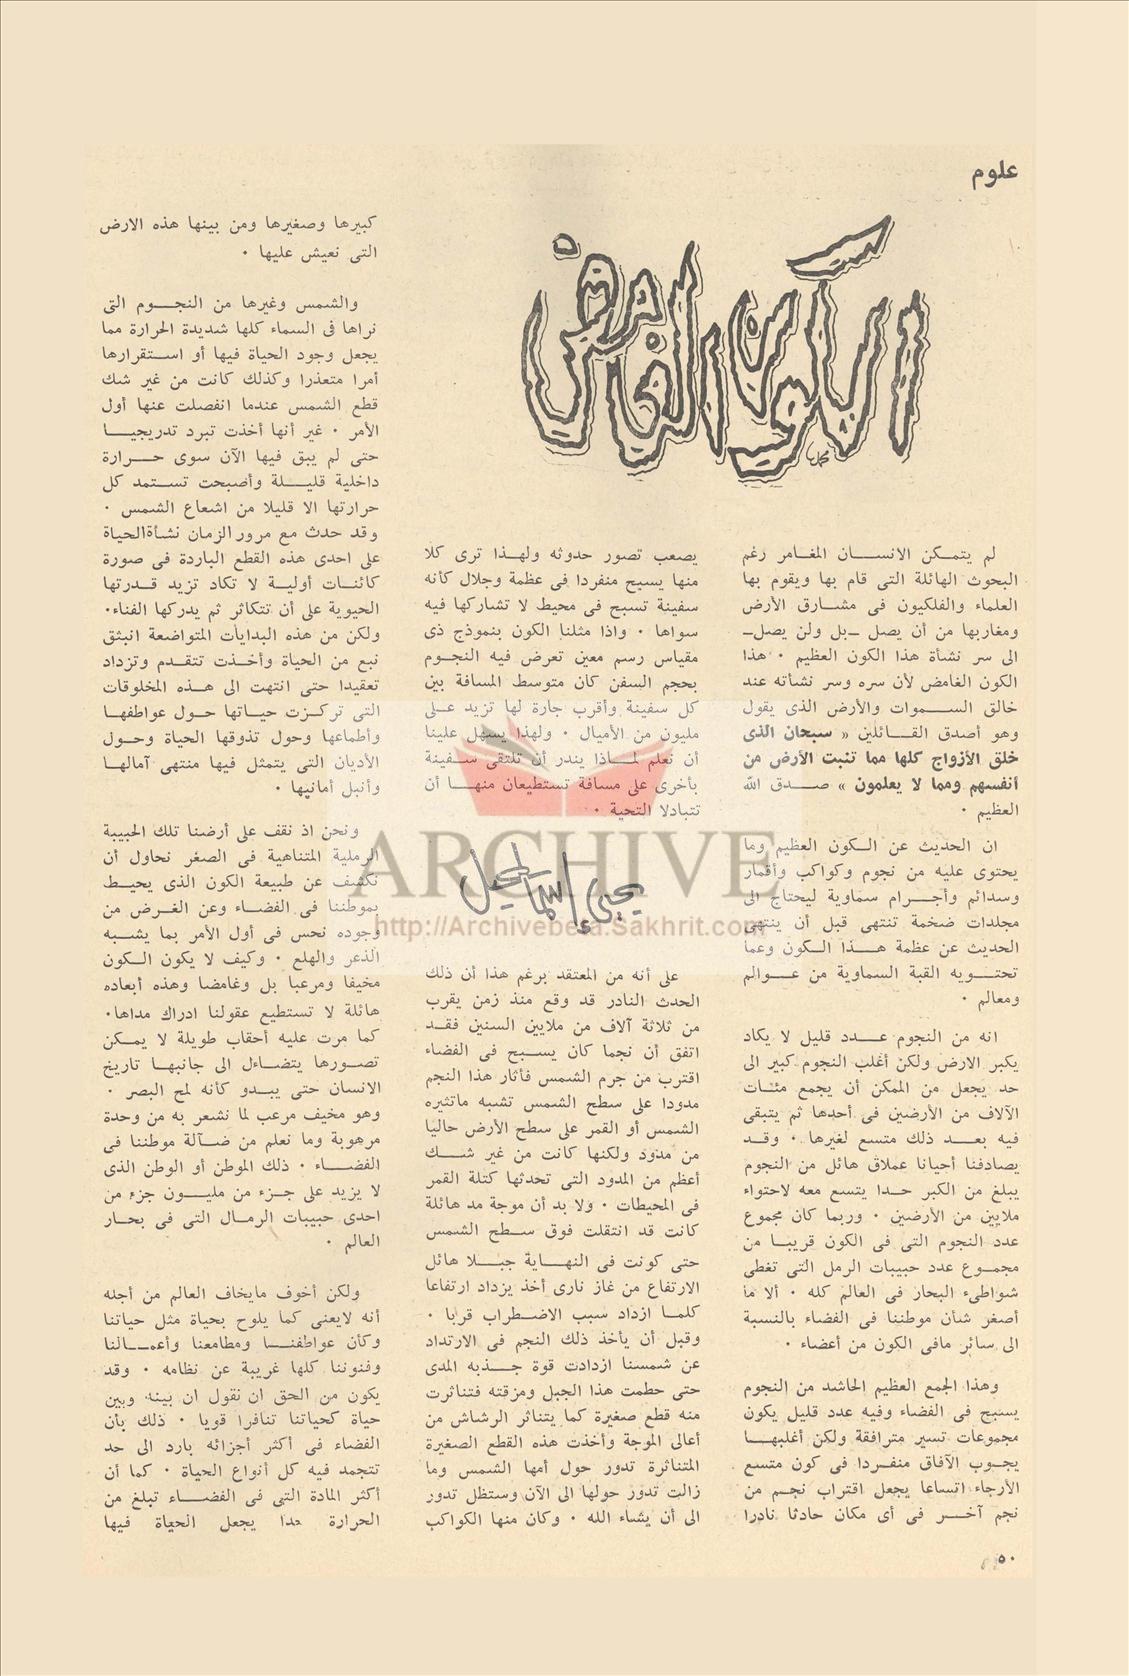 علوم
الكون الغامض
لم يتمـكن الانســان المغـامر رغم
البحوث الهائلة التى قام بها ويقوم بها
العلماء والفلكيون فى مشـارق الأرض
ومغاربها من أن يصل ـبل ولن يصلـ
الى سر نشأة هذا الكون العظيم ٠ هذا
الكون الغامض لأن سره وسر نشأته عند
خالق الســموات والأرض الذى يقول
وهو أصدق القـائلين « سبحان الذى
خلق الأزواج كلها مما تنبت الأرض من
أنفسهم ومما لا يعلمون » صـدق الله
العظيم ٠
ان الحديث عن الـكون العظيم وما
يحتوى عليه من نجوم وكواكب وأقمار
وسدائم وأجـرام سماوية ليحتاج الى
مجلدات ضخمة تنتهى قبل أن ينتهى
الحديث عن عظمة هــذا الـكون وعما
تحتــويه القبة السماوية من عــوالم
ومعالم ٠
انه من النجوم عــدد قليل لا يكاد
يكبر الارض ولكن أغلب النجوم كبير الى
حد يجعل من الممكن أن يجمع مئـات
الآلاف من الأرضين فى أحدها ثم يتبقى
فيه بعــد ذلك متسع لغيرها ٠ وقـد
يصادفنا أحيانا عملاق هائل من النجوم
يبلغ من الكبر حـدا يتسع معه لاحتواء
ملايين من الأرضين ٠ وربما كان مجموع
عدد النجوم التى فى الكون قريبـا من
مجمـوع عدد حبيبات الرمل التى تغطى
شواطىء البحار فى العالم كله ٠ ألا ما
أصغر شأن موطننا فى الفضاء بالنسبة
الى سائر مافى الكون من أعضاء ٠
وهذا الجمع العظيم الحاشد من النجوم
يسبح فى الفضاء وفيه عدد قليل يكون
مجموعات تسير مترافقة ولكن أغلبهـا
يجـوب الآفاق منفـردا فى كون متسع
الأرجاء اتساعا يجعل اقتراب نجـم من
نجم آخـر فى أى مكان حادثا نادرا
يصعب تصور حدوثه ولهـذا ترى كلا
منها يسبح منفردا فى عظمة وجلال كأنه
سفينة تسبح فى محيط لا تشاركها فيه
سواها ٠ واذا مثلنا الكون بنموذج ذى
مقياس رسم معين تعرض فيه النجـوم
بحجم السفن كان متوسط المسافة بين
كل سفينة وأقرب جارة لها تزيد عـلى
مليون من الأميال ٠ ولهذا يسهل علينا
أن نعلم لمـاذا يندر أن تلتقى سـفينة
بأخرى على مسافة تستطيعان منهــا أن
تتبادلا التحية ٠
يحيى إسماعيل
على أنه من المعتقد برغم هذا أن ذلك
الحدث النادر قد وقع منذ زمن يقرب
من ثلاثة آلاف من ملايين السنين فقـد
اتفق أن نجما كان يســبح فى الفضاء
اقترب من جرم الشمس فأثار هذا النجم
مدودا على سطح الشمس تشبه ماتثيره
الشمس أو القمر على سطح الأرض حاليا
من مدود ولكنها كانت من غير شــك
أعظم من المدود التى تحدثها كتلة القمر
فى المحيطات ٠ ولا بد أن موجة مد هائلة
كانت قد انتقلت فوق سـطح الشمس
حتى كونت فى النهـاية جبـلا هائل
الارتفاع من غاز نارى أخذ يزداد ارتفاعا
كلمـا ازداد سبب الاضـطراب قربا ٠
وقبل أن يأخذ ذلك النجم فى الارتداد
عن شمسنا ازدادت قوة جــذبه المدى
حتى حطمت هذا الجبل ومزقته فتناثرت
منه قطع صغيرة كما يتناثر الرشاش من
أعالى الموجة وأخذت هذه القطع الصغيرة
المتناثرة تدور حول أمها الشمس وما
زالت تدور حولها الى الآن وستظل تدور
الى أن يشاء الله ٠ وكان منها الكواكب
كبيرها وصغيرها ومن بينها هذه الارض
التى نعيش عليها ٠
والشمس وغيرها من النجــوم التى
نراها فى السماء كلها شديدة الحرارة مما
يجعل وجود الحياة فيها أو اسـتقرارها
أمرا متعذرا وكذلك كانت من غير شك
قطع الشمس عندما انفصلت عنها أول
الأمر ٠ غير أنها أخذت تبرد تدريجيــا
حتى لم يبق فيها الآن سوى حــرارة
داخلية قليـلة وأصبحت تسـتمد كل
حرارتها الا قليلا من اشعاع الشمس ٠
وقد حدث مع مرور الزمان نشأةالحياة
على احدى هذه القطع الباردة فى صورة
كائنـات أولية لا تكاد تزيد قـدرتها
الحيوية على أن تتكاثر ثم يدركها الفناء٠
ولكن من هذه البدايات المتواضعة انبثق
نبع من الحياة وأخـذت تتقـدم وتزداد
تعقيدا حتى انتهت الى هـذه المخلوقات
التى تركـزت حيـاتها حـول عواطفهـا
وأطماعها وحول تذوقها الحياة وحـول
الأديان التى يتمثل فيها منتهى آمالهـا
وأنبل أمانيها ٠
ونحن اذ نقف على أرضنا تلك الحبيبة
الرملية المتناهية فى الصغر نحاول أن
نكشف عن طبيعة الكون الذى يحيـط
بموطننا فى الفضاء وعن الغـرض من
وجوده نحس فى أول الأمر بما يشـبه
الذعر والهلع ٠ وكيف لا يكون الـكون
مخيفا ومرعبا بل وغامضا وهذه أبعاده
هائلة لا تستطيع عقولنا ادراك مداها٠
كما مرت عليه أحقاب طويلة لا يمـكن
تصـورها يتضـاءل الى جانبهـا تاريخ
الانسان حتى يبـدو كأنه لمح البصر ٠
وهو مخيف مرعب لما نشعر به من وحدة
مرهوبة وما نعلم من ضـآلة موطننا فى
الفضـاء ٠ ذلك الموطن أو الوطن الذى
لا يزيد على جـزء من مليـون جزء من
احدى حبيبات الرمـال التى فى بحـار
العالم ٠
ولكن أخوف مايخاف العالم من أجله
أنه لايعنى كما يلوح بحياة مثل حياتنا
وكأن عواطفنـا ومطامعنا وأعمـالنا
وفنوننا كلها غريبة عن نظامه ٠ وقد
يكون من الحق ان نقول ان بينه وبين
حياة كحياتنا تنافرا قويا ٠ ذلك بأن
الفضاء فى أكثر أجزائه بارد الى حد
تتجمد فيه كل أنواع الحياة ٠ كما أن
أكثر المادة التى فى الفضـاء تبلغ من
الحرارة حدا يجعل الحياة فيها
٥٠
ARCHIVE
http://Archivebeta.Sakhrit.com